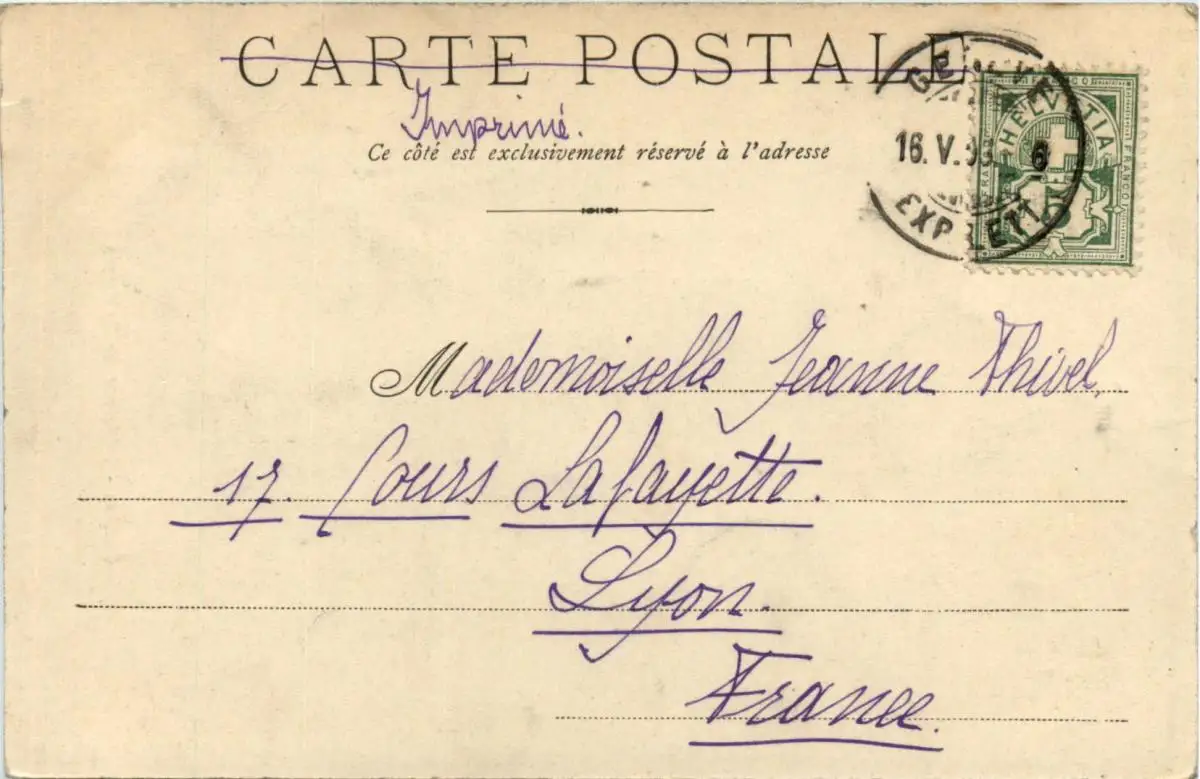 CARTE POSTALE
Imprimé.
Ce côté est exclusivement réservé à l'adresse
16. V. 99 6
EXP. LETT.
FRANCO
HELVETIA
FRANCO
FRANCO
5
Mademoiselle Jeanne Thivel,
17. Cours Lafayette.
Lyon.
France.